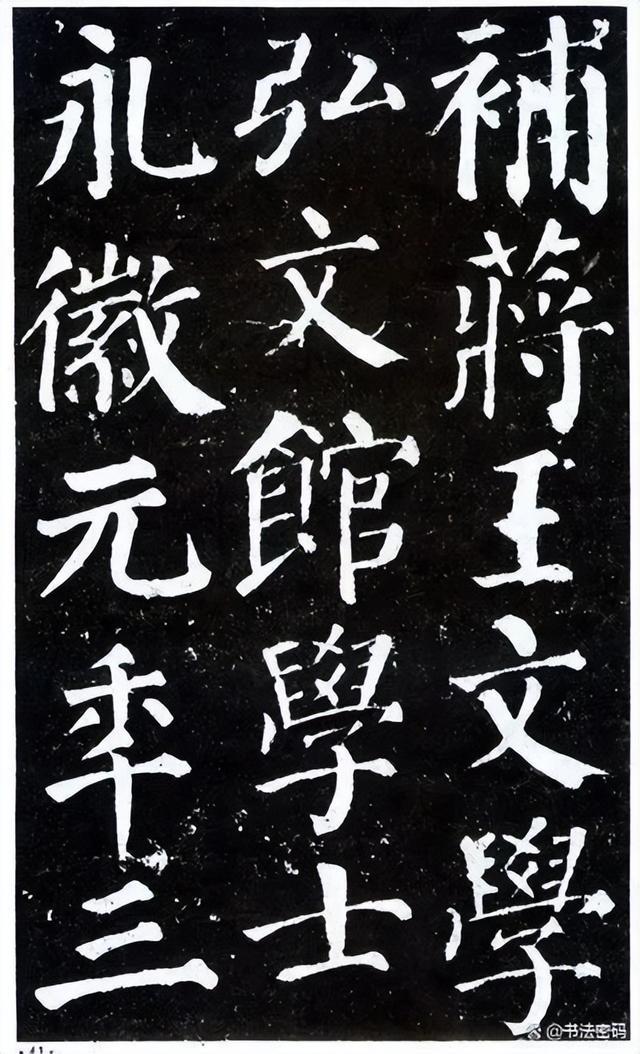 補蔣王文學
弘文館學士
永徽元年三
·41·
@书法密码